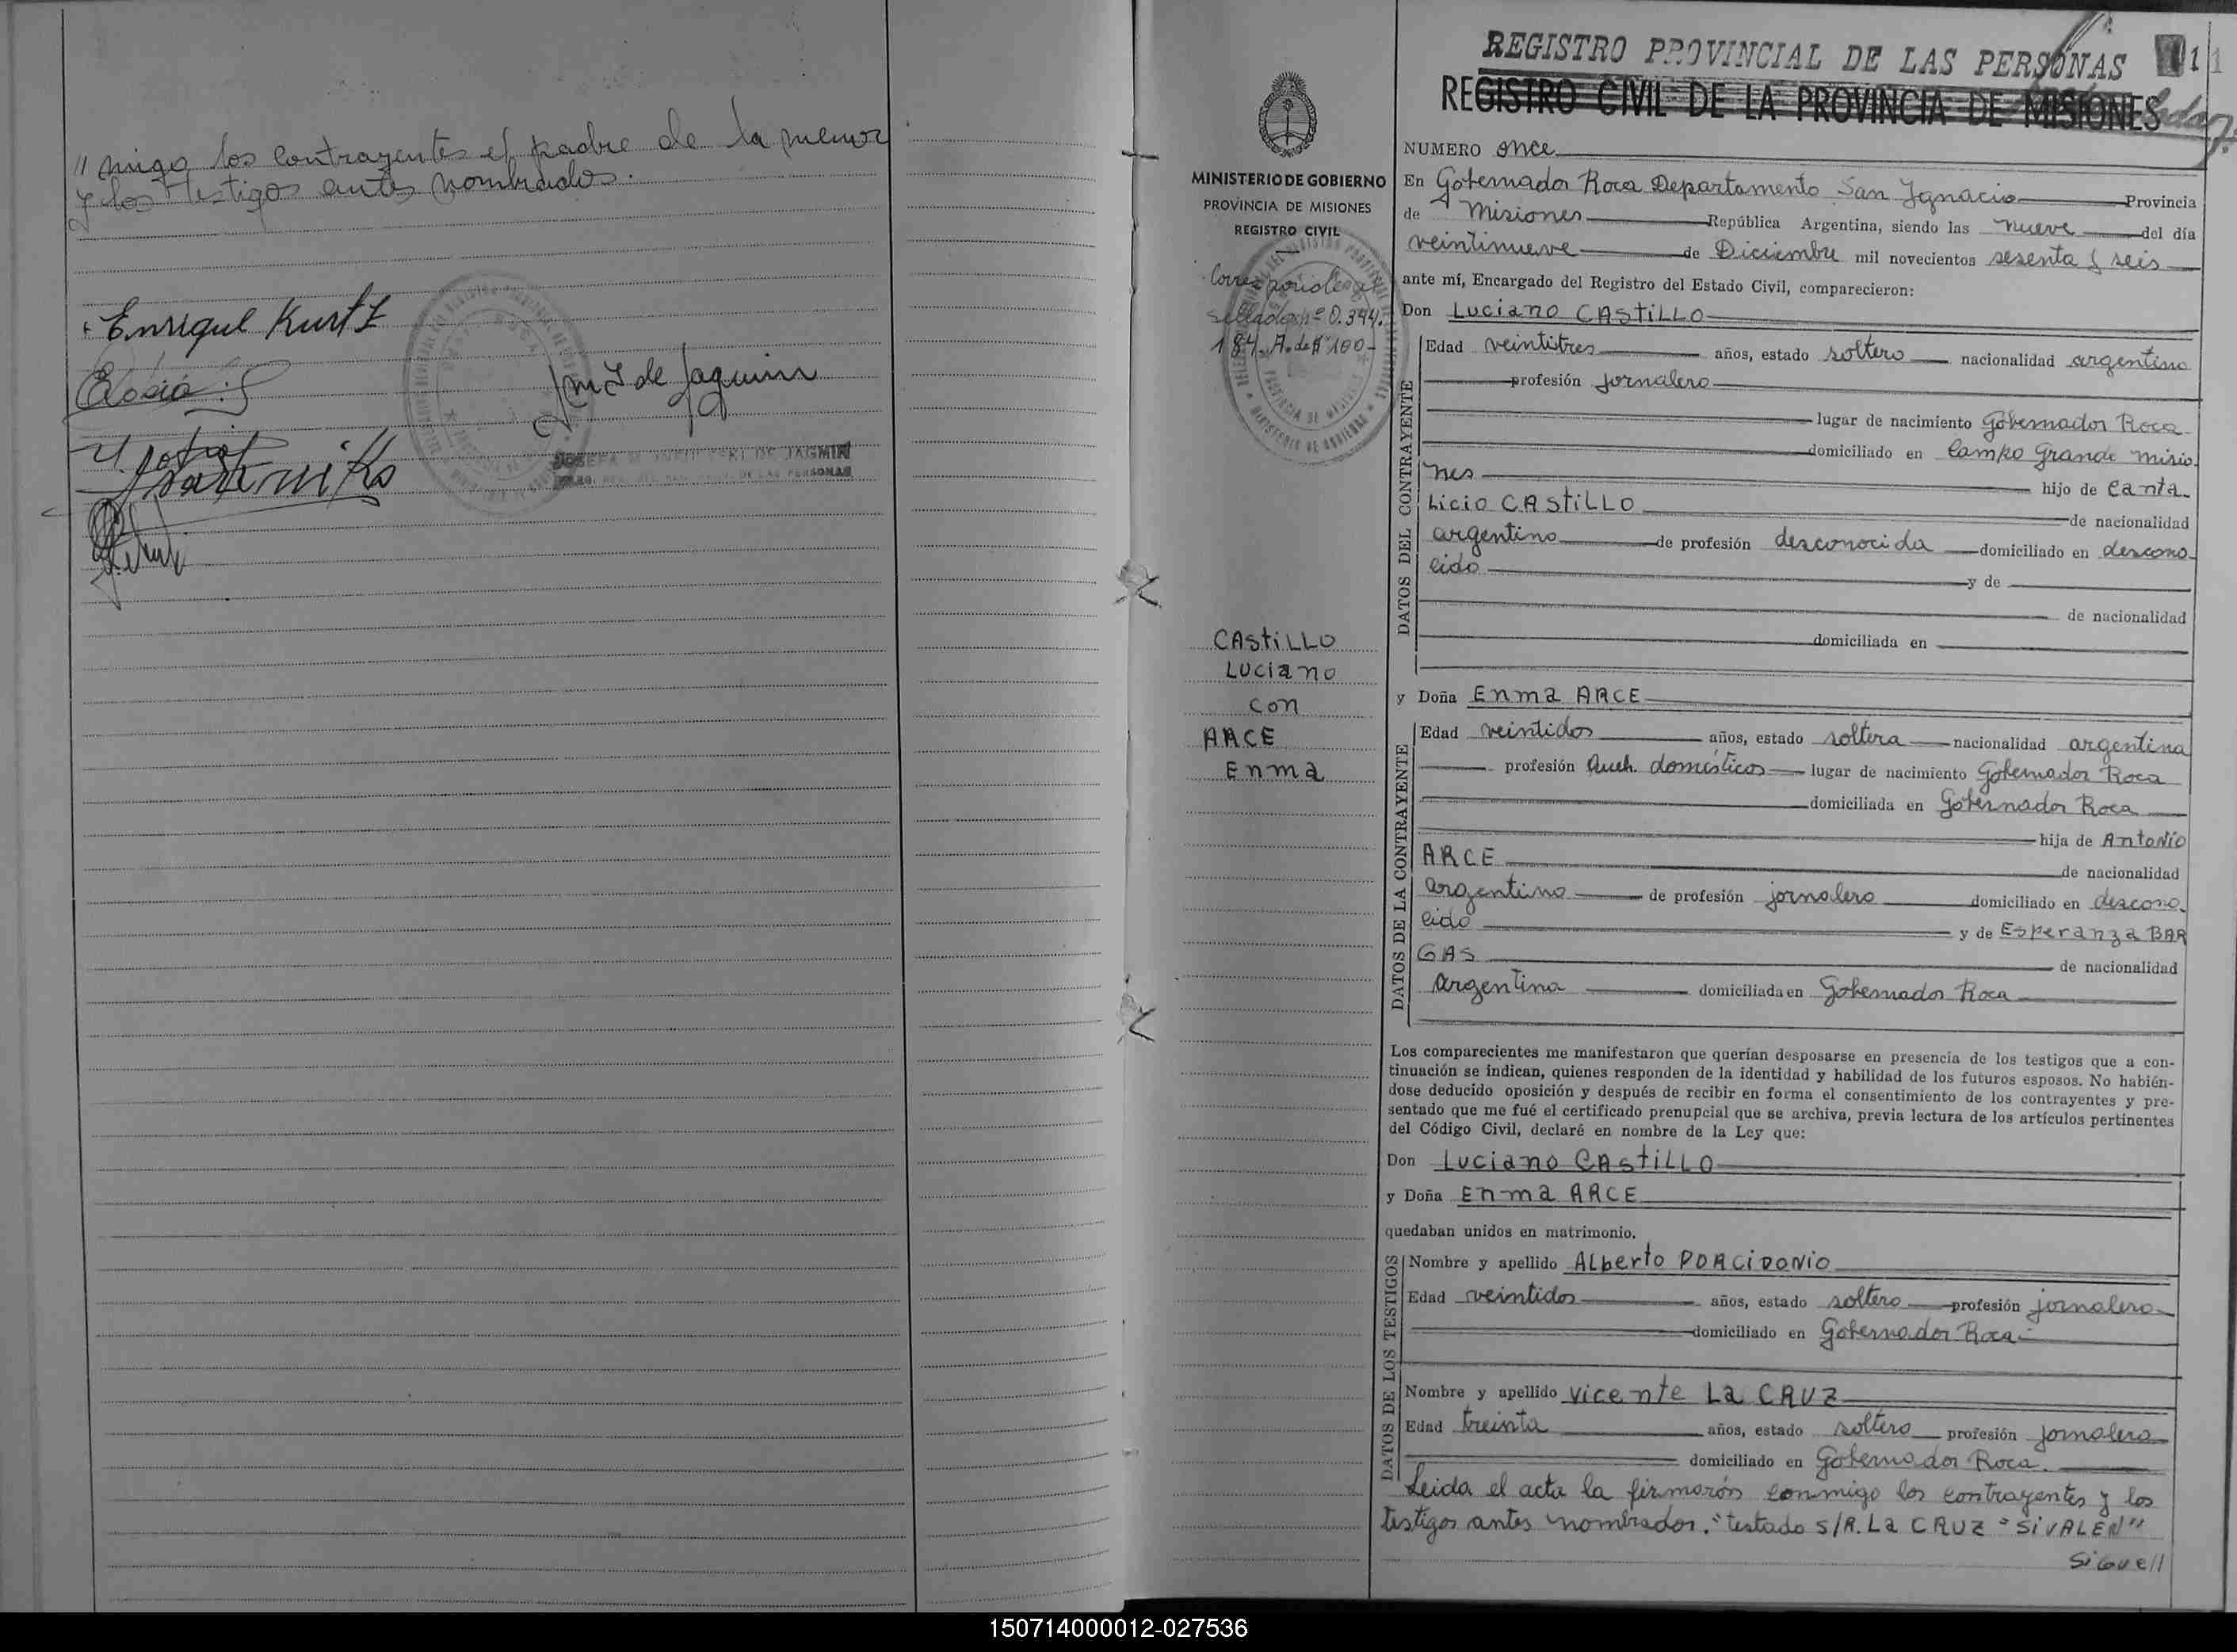 // migo los contrayentes el padre de la menor
y los testigos antes nombrados.
Enrique Kurtz
REGISTRO PROVINCIAL DE LAS PERSONAS
11
REGISTRO CIVIL DE LA PROVINCIA DE MISIONES
MINISTERIO DE GOBIERNO
PROVINCIA DE MISIONES
REGISTRO CIVIL
Corresponde al
sellado nº 0.344.
184. A. de $ 100-
CAStiLLO
Luciano
con
ARCE
Enma
NUMERO once
En Gobernador Roca Departamento San Ignacio Provincia
de Misiones República Argentina, siendo las nueve del día
veintinueve de Diciembre mil novecientos sesenta y seis
ante mí, Encargado del Registro del Estado Civil, comparecieron:
Don Luciano CAStiLLO
DATOS DEL CONTRAYENTE
Edad veintitres años, estado soltero nacionalidad argentino
profesión jornalero
lugar de nacimiento Gobernador Roca
domiciliado en Campo Grande Misio
nes hijo de Canta-
Licio CAStiLLO de nacionalidad
argentino de profesión desconocida domiciliado en descono-
cido y de
de nacionalidad
domiciliada en
y Doña Enma ARCE
DATOS DE LA CONTRAYENTE
Edad veintidos años, estado soltera nacionalidad argentina
profesión Queh. domésticos lugar de nacimiento Gobernador Roca
domiciliada en Gobernador Roca
hija de AntoNio
ARCE de nacionalidad
argentino de profesión jornalero domiciliado en descono-
cido y de Esperanza BAR
GAS de nacionalidad
argentina domiciliada en Gobernador Roca
Los comparecientes me manifestaron que querían desposarse en presencia de los testigos que a con-
tinuación se indican, quienes responden de la identidad y habilidad de los futuros esposos. No habién-
dose deducido oposición y después de recibir en forma el consentimiento de los contrayentes y pre-
sentado que me fué el certificado prenupcial que se archiva, previa lectura de los artículos pertinentes
del Código Civil, declaré en nombre de la Ley que:
Don Luciano CAStiLLO
y Doña Enma ARCE
quedaban unidos en matrimonio.
DATOS DE LOS TESTIGOS
Nombre y apellido ALberto PORCiDONio
Edad veintidos años, estado soltero profesión jornalero
domiciliado en Gobernador Roca
Nombre y apellido vicente La CRUZ
Edad treinta años, estado soltero profesión jornalero
domiciliado en Gobernador Roca.
Leida el acta la firmarón conmigo los contrayentes y los
testigos antes nombrados. "testado S/R. La CRUZ "SiVALEN"
Sigue//
150714000012-027536